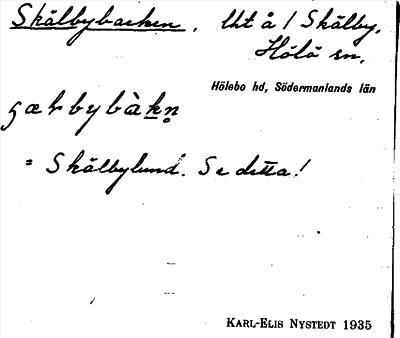 Skälbybacken. Uts å 1 Skälby,
Hölö sn,
Hölebo hd, Södermanlands län
= Skälbylund. Se detta!
KARL-ELIS NYSTEDT 1935